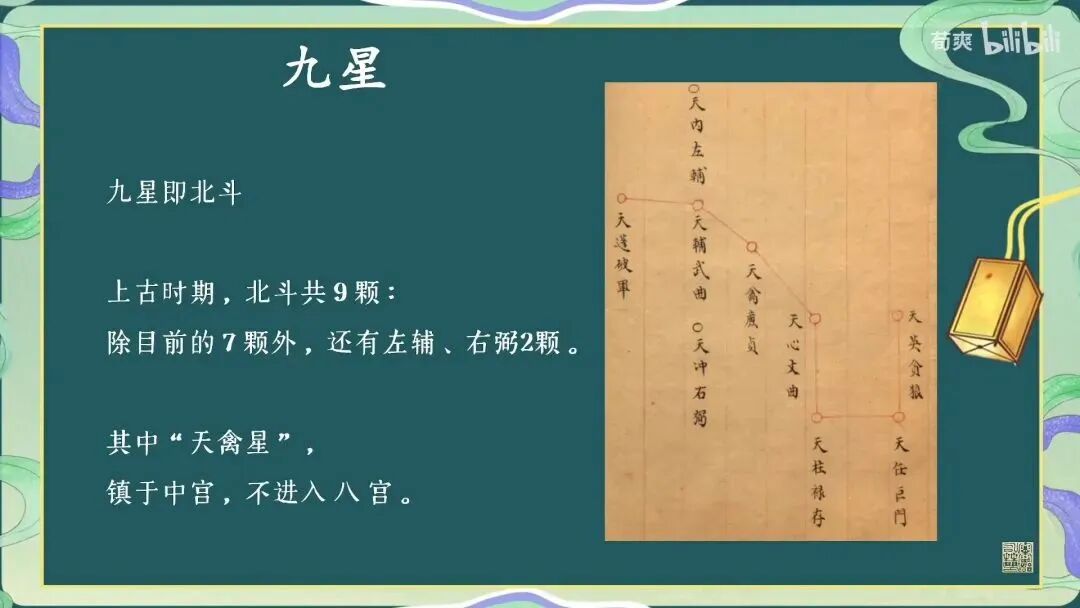 荀爽 bilibili
九星
九星即北斗
上古时期，北斗共9颗：
除目前的7颗外，还有左辅、右弼2颗。
其中“天禽星”，
镇于中宫，不进入八宫。
天内左輔
天蓬破軍
天輔武曲
天禽廉貞
天冲右弼
天心文曲
天柱禄存
天英貪狼
天任巨門